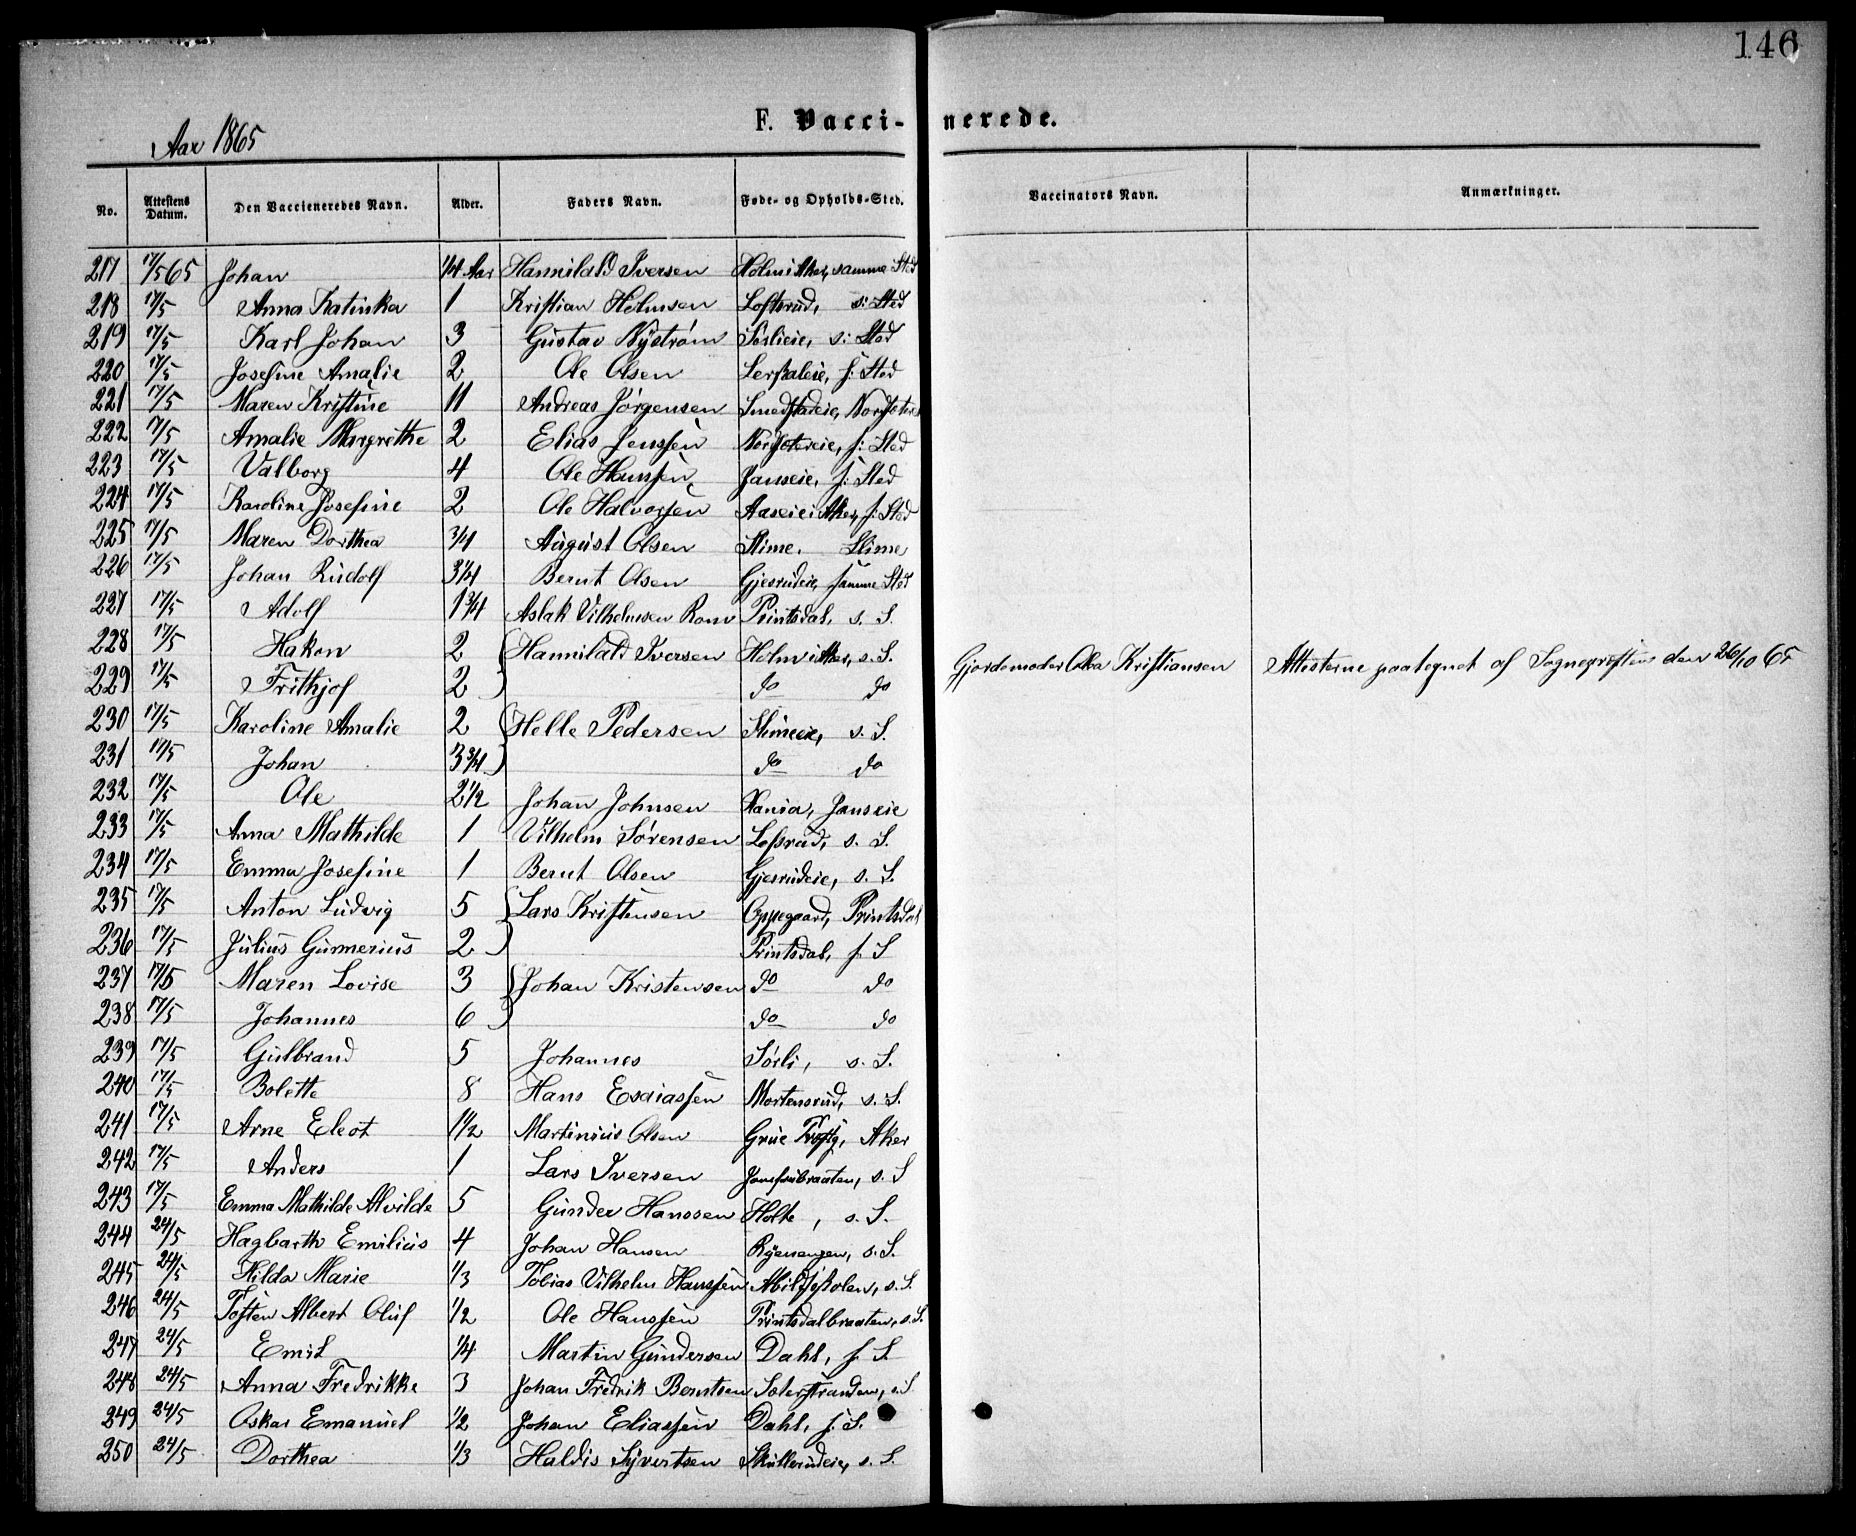 146
F. Vacci- nerede.
Aar 1865
No. Attestens Datum. Den Vaccieneredes Navn. Alder. Faders Navn. Føde- og Opholds-Sted. Vaccinators Navn. Anmærkninger.
217 17/5 65 Johan 1/4 Aar Hannibald Iversen Holm i Aker, samme Sted
218 17/5 Anna Katinka 1 Kristian Helmsen Lofsrud, s: Sted
219 17/5 Karl Johan 3 Gustav Nÿstrøm Sörlieie, s: Sted
220 17/5 Josefine Amalie 2 Ole Olsen Lerskaleie, f: Sted
221 17/5 Maren Kristine 11 Andreas Jørgensen Smedstadeie,
222 17/5 Amalie Margrethe 2 Elias Jenssen f: Sted
223 17/5 Valborg 4 Ole Hanssen Janseie, f: Sted
224 17/5 Karoline Josefine 2 Ole Halvorsen Aaseie i Aker, f: Sted
225 17/5 Maren Dorthea 3/4 August Olsen Slime. Slime
226 17/5 Johan Rudolf 3 1/4 Bernt Olsen Gjersrudeie, samme Sted
227 17/5 Adolf 1 3/4 Aslak Vilhelmsen Rom Printsdal, s. S.
228 17/5 Hakon 2 Hannibald Iversen Holm i Aker, s. S.
229 17/5 Frithjof 2 do do Gjordemoder Olea Kristiansen Attesterne paategnet af Sognepresten den 26/10 65
230 17/5 Karoline Amalie 2 Helle Pedersen Slimeeie, s. S.
231 17/5 Johan 3 3/4 do do
232 17/5 Ole 2 1/2 Johan Johnsen Xania, Janseie
233 17/5 Anna Mathilde 1 Vilhelm Sørensen Lofsrud, s. S.
234 17/5 Emma Josefine 1 Bernt Olsen Gjersrudeie, s. S.
235 17/5 Anton Ludvig 5 Lars Kristensen Oppegaard, Printsdal
236 17/5 Julius Gunnerius 2 Printsdal, f. S
237 17/5 Maren Lovise 3 Johan Kristensen do do
238 17/5 Johannes 6 do do
239 17/5 Gulbrand 5 Johannes Sørli, s. S.
240 17/5 Bolette 8 Hans Esaiassen Mortensrud, s. S.
241 17/5 Arne Eleot 1 1/2 Martinius Olsen Grue Prstgj, Aker
242 17/5 Anders 1 Lars Iversen Jomfrubraaten, s. S
243 17/5 Emma Mathilde Alvilde 5 Gunder Hanssen Holte, s. S.
244 24/5 Hagbarth Emilius 4 Johan Hansen Ryenengen, s. S.
245 24/5 Hilda Marie 1/3 Tobias Vilhelm Hanssen Abildsøkolen, s. S.
246 24/5 Tosten Albert Oluf 1/2 Ole Hanssen Printsdalbraaten, s. S.
247 24/5 Emil 1/4 Martin Gundersen Dahl, f. S.
248 24/5 Anna Fredrikke 3 Johan Fredrik Berntsen Sæterstranden, s. S
249 24/5 Oskar Emanuel 1/2 Johan Eliassen Dahl, f. S.
250 24/5 Dorthea 1/3 Haldis Syvertsen Skullerudeie, s. S.